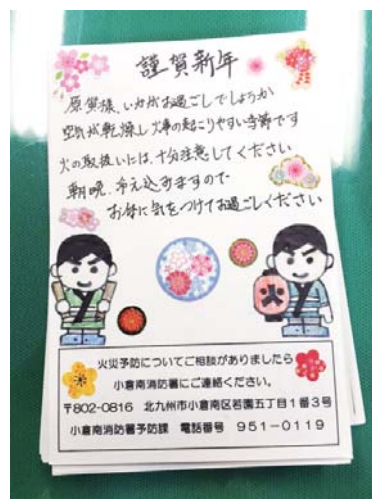 謹賀新年
原賀様、いかがお過ごしでしょうか
空気が乾燥し火事の起こりやすい季節です
火の取扱いには、十分注意してください
朝晩、冷え込みますので
お体に気をつけてお過ごしください
火
火災予防についてご相談がありましたら
小倉南消防署にご連絡ください。
〒802-0816 北九州市小倉南区若園五丁目1番3号
小倉南消防署予防課 電話番号 951-0119